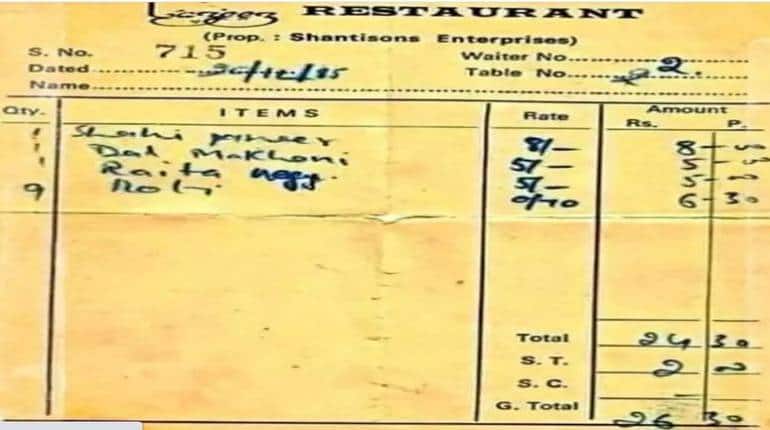 RESTAURANT
(Prop. : Shantisons Enterprises)
S. No. 715 Waiter No.
Dated 20/12/85 Table No. 2.
Name
Qty. ITEMS Rate Amount
Rs. P.
1 Shahi paneer 8/- 8 - 00
1 Dal Makhani 5/- 5 - 00
1 Raita 5/- 5 - 00
9 Roti 0/70 6 - 30
Total 24 30
S. T. 2 00
S. C. -
G. Total 26 30